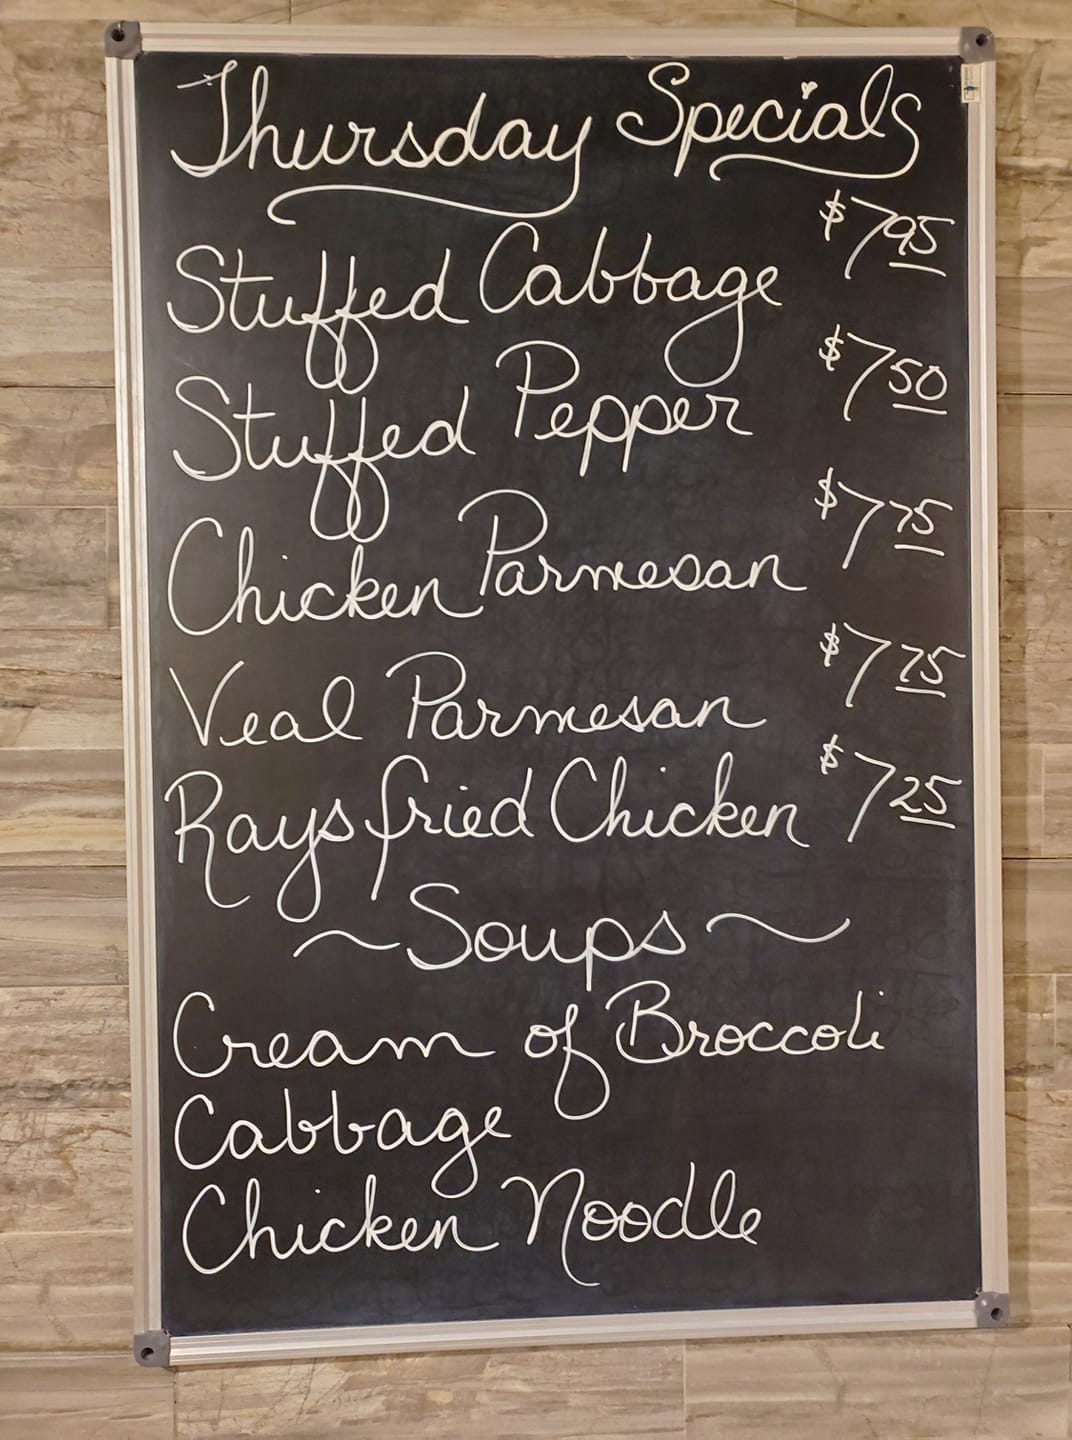 Thursday Specials
Stuffed Cabbage $7.95
Stuffed Pepper $7.50
Chicken Parmesan $7.75
Veal Parmesan $7.75
Rays fried Chicken $7.25
~Soups~
Cream of Broccoli
Cabbage
Chicken Noodle